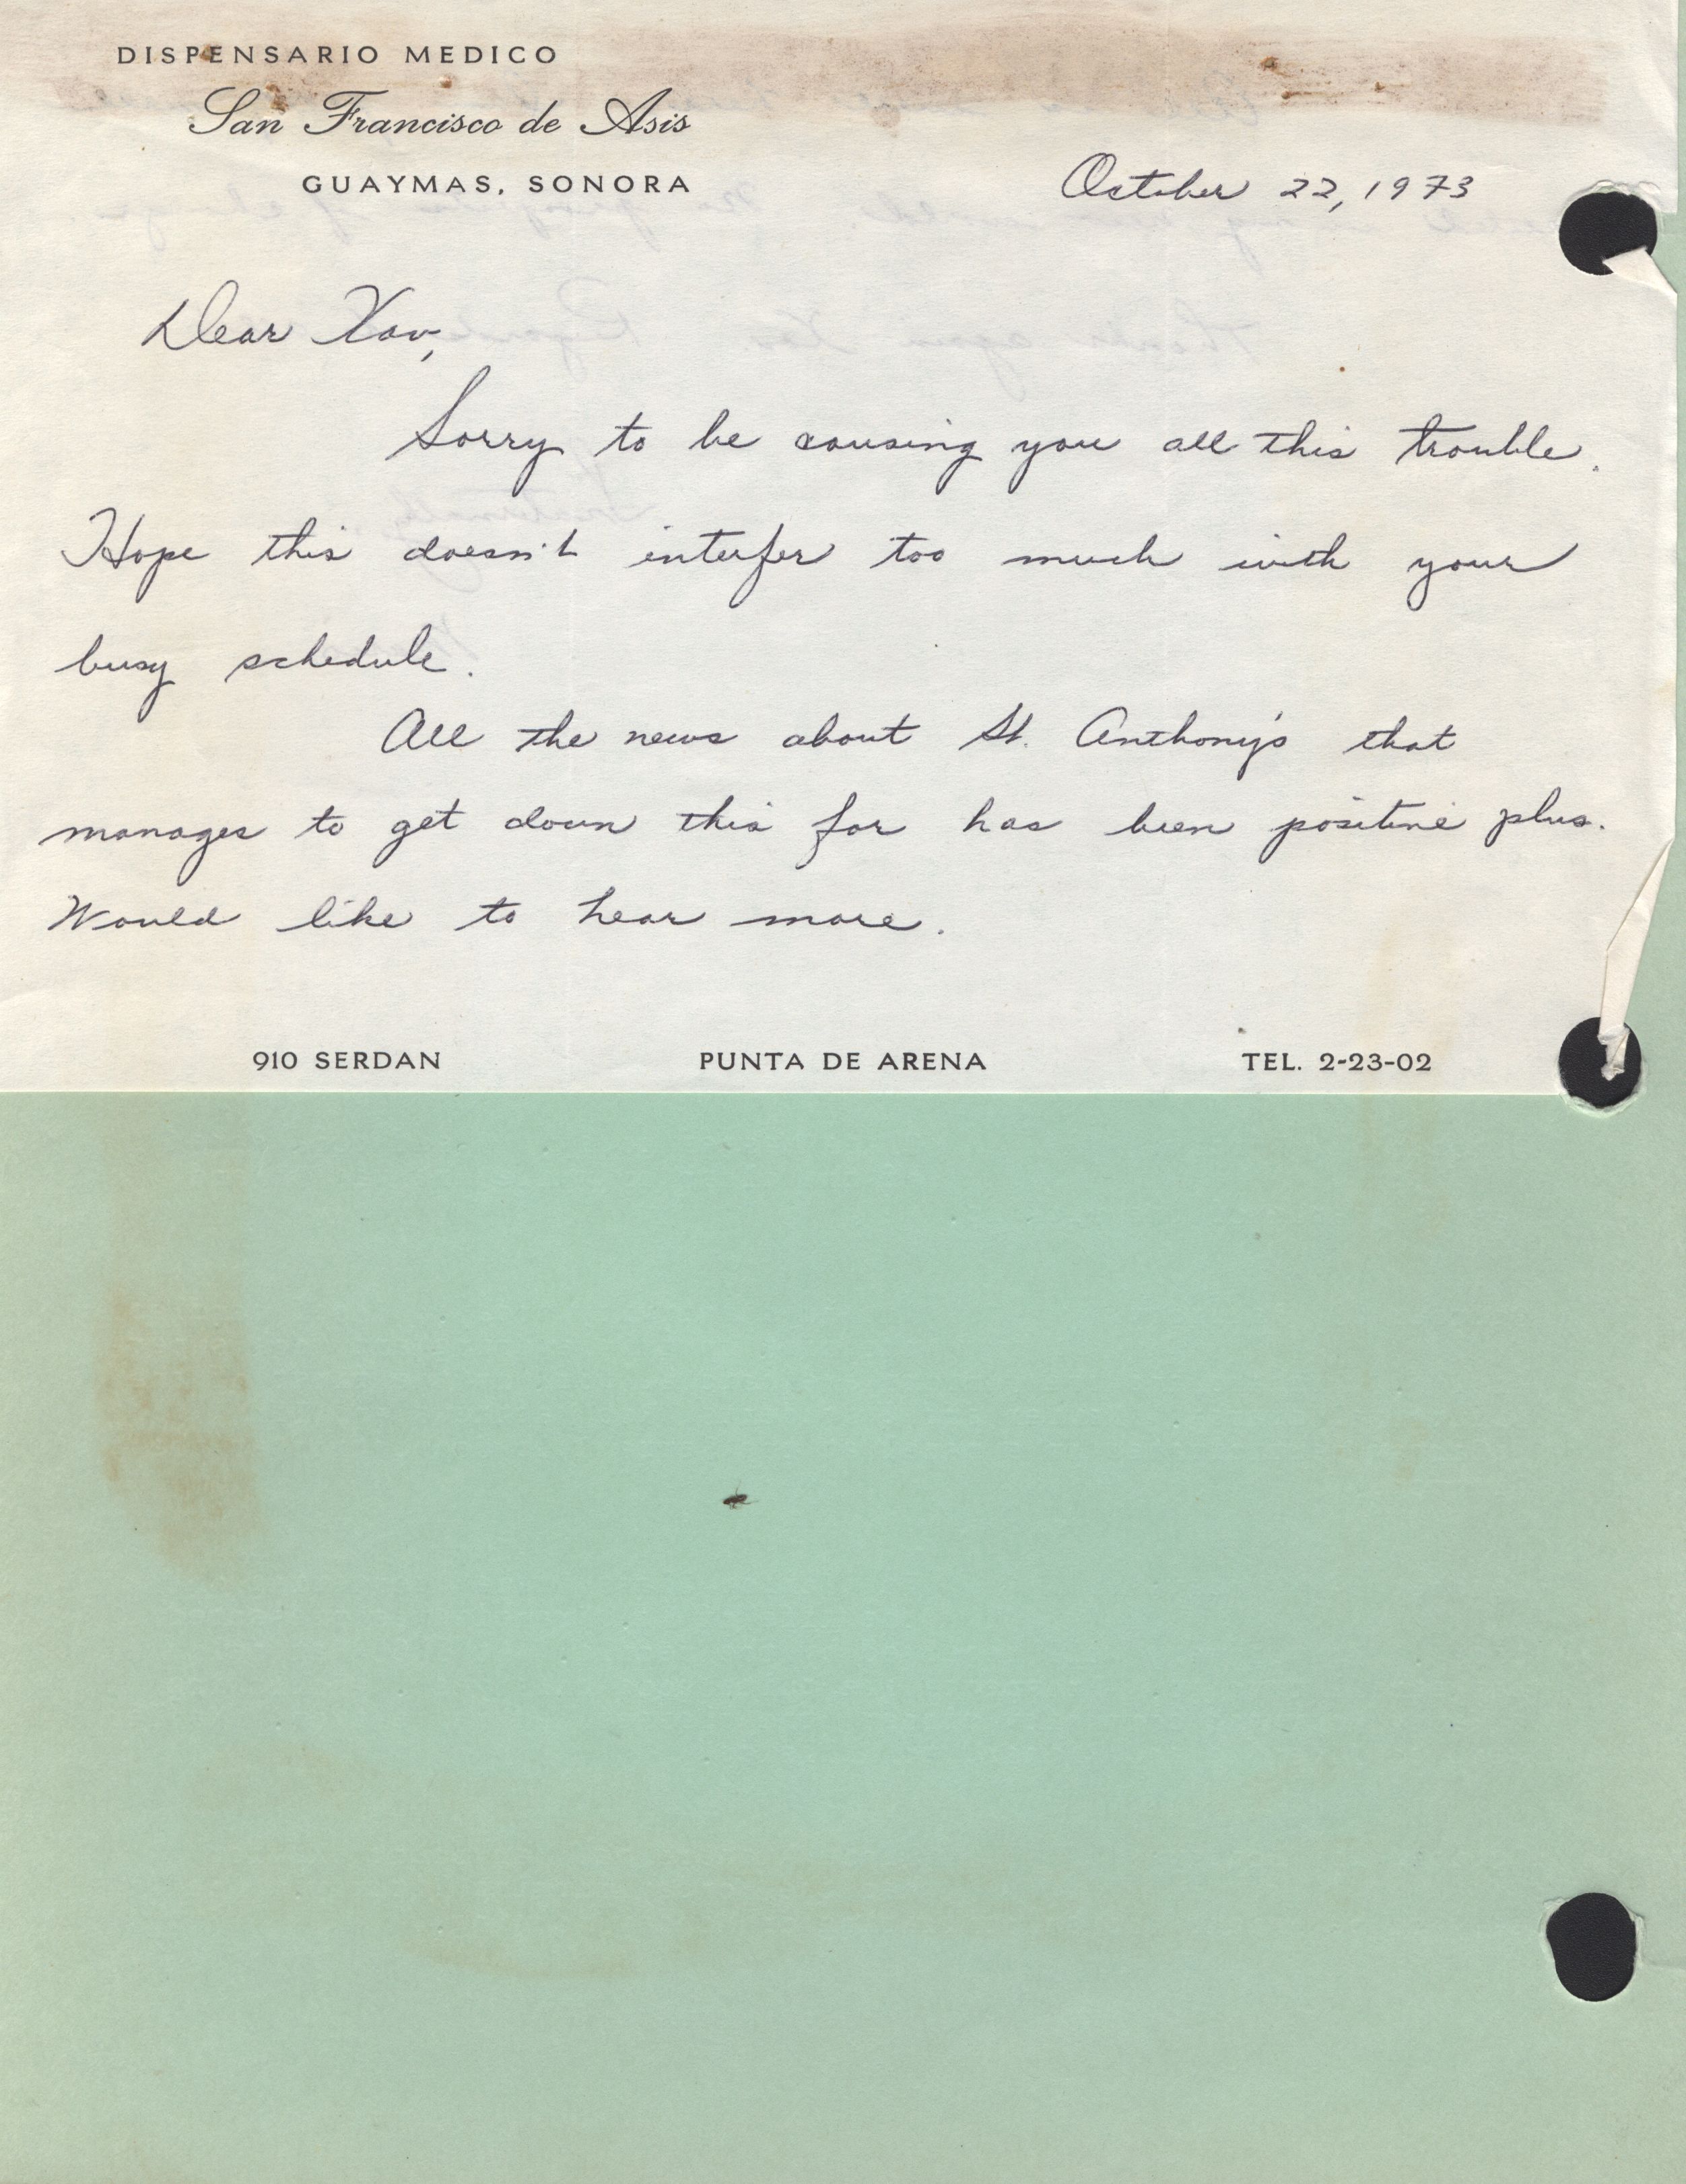 DISPENSARIO MEDICO
San Francisco de Asis
GUAYMAS, SONORA
October 22, 1973
Dear Xav,
Sorry to be causing you all this trouble.
Hope this doesn't interfer too much with your
busy schedule.
All the news about St. Anthony's that
manages to get down this far has been positive plus.
Would like to hear more.
910 SERDAN PUNTA DE ARENA TEL. 2-23-02